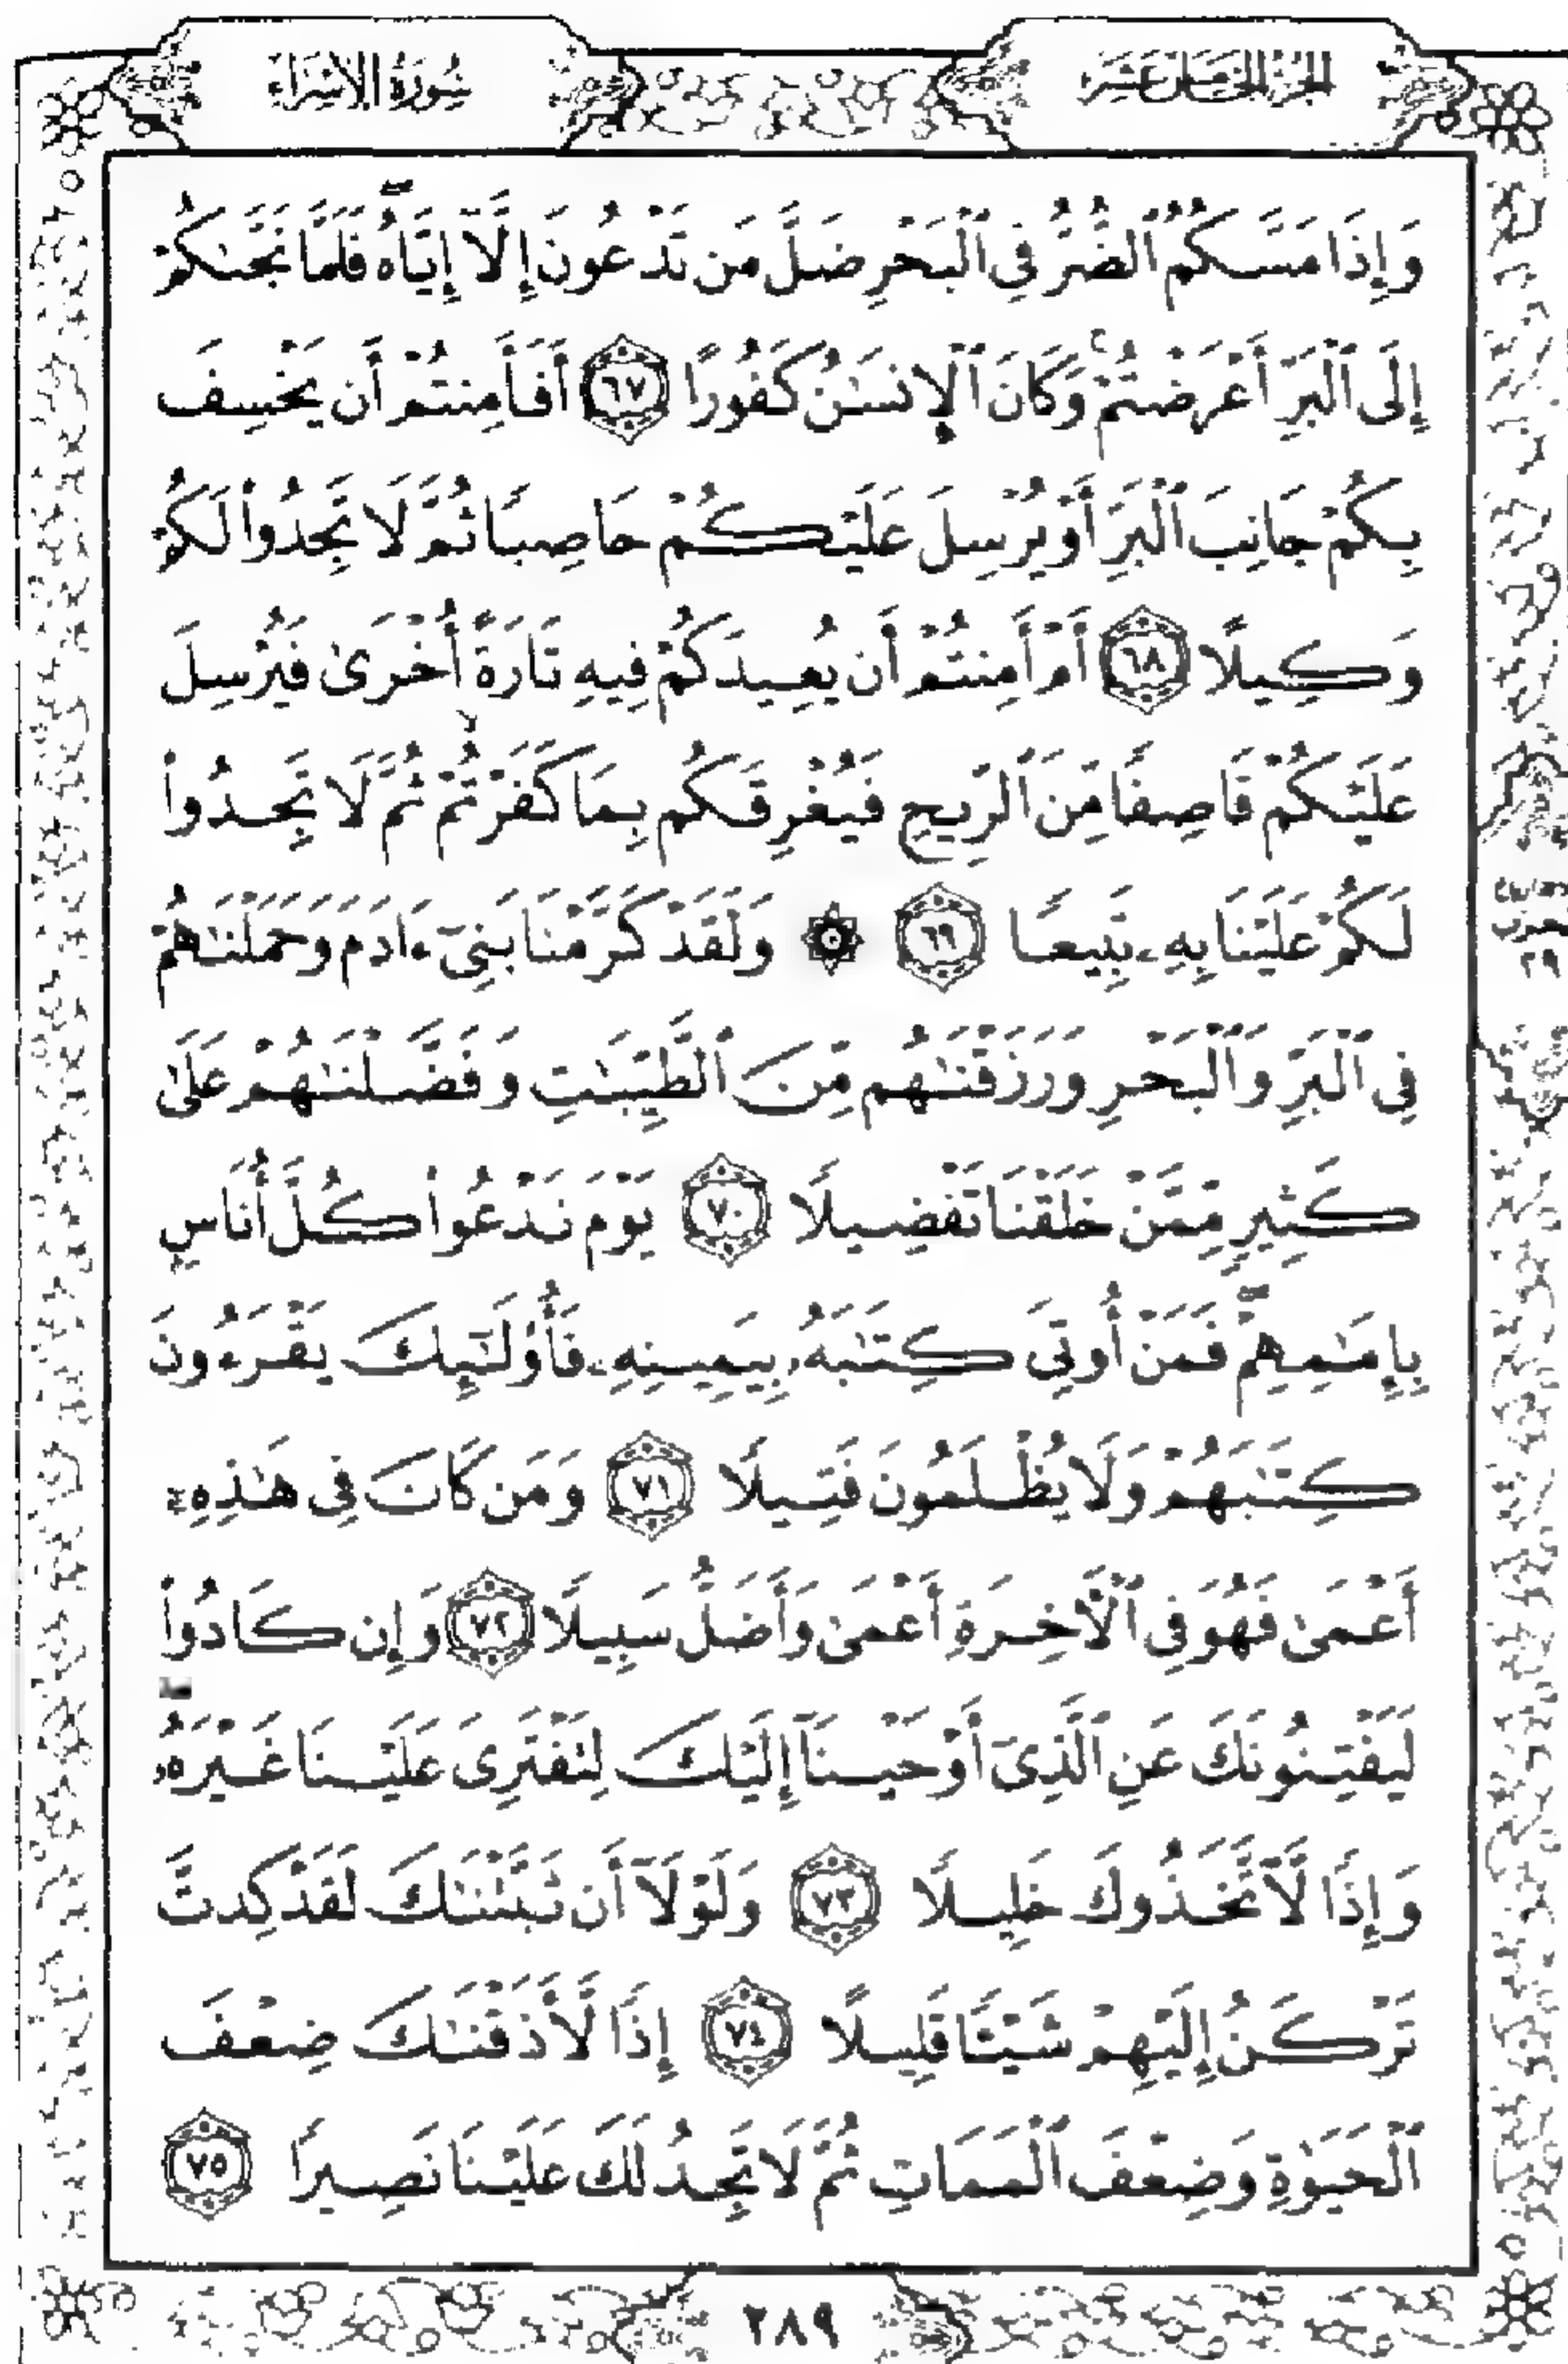 الجزء الخامس عشر
سُورَةُ الإِسْرَاءِ
وَإِذَا مَسَّكُمُ ٱلضُّرُّ فِى ٱلْبَحْرِ ضَلَّ مَن تَدْعُونَ إِلَّآ إِيَّاهُ ۖ فَلَمَّا نَجَّىٰكُمْ
إِلَى ٱلْبَرِّ أَعْرَضْتُمْ ۚ وَكَانَ ٱلْإِنسَـٰنُ كَفُورًا ٦٧ أَفَأَمِنتُمْ أَن يَخْسِفَ
بِكُمْ جَانِبَ ٱلْبَرِّ أَوْ يُرْسِلَ عَلَيْكُمْ حَاصِبًا ثُمَّ لَا تَجِدُوا۟ لَكُمْ
وَكِيلًا ٦٨ أَمْ أَمِنتُمْ أَن يُعِيدَكُمْ فِيهِ تَارَةً أُخْرَىٰ فَيُرْسِلَ
عَلَيْكُمْ قَاصِفًا مِّنَ ٱلرِّيحِ فَيُغْرِقَكُم بِمَا كَفَرْتُمْ ۙ ثُمَّ لَا تَجِدُوا۟
لَكُمْ عَلَيْنَا بِهِۦ تَبِيعًا ٦٩ ۞ وَلَقَدْ كَرَّمْنَا بَنِىٓ ءَادَمَ وَحَمَلْنَـٰهُمْ
فِى ٱلْبَرِّ وَٱلْبَحْرِ وَرَزَقْنَـٰهُم مِّنَ ٱلطَّيِّبَـٰتِ وَفَضَّلْنَـٰهُمْ عَلَىٰ
كَثِيرٍ مِّمَّنْ خَلَقْنَا تَفْضِيلًا ٧٠ يَوْمَ نَدْعُوا۟ كُلَّ أُنَاسٍۭ
بِإِمَـٰمِهِمْ ۖ فَمَنْ أُوتِىَ كِتَـٰبَهُۥ بِيَمِينِهِۦ فَأُو۟لَـٰٓئِكَ يَقْرَءُونَ
كِتَـٰبَهُمْ وَلَا يُظْلَمُونَ فَتِيلًا ٧١ وَمَن كَانَ فِى هَـٰذِهِۦٓ
أَعْمَىٰ فَهُوَ فِى ٱلْـَٔاخِرَةِ أَعْمَىٰ وَأَضَلُّ سَبِيلًا ٧٢ وَإِن كَادُوا۟
لَيَفْتِنُونَكَ عَنِ ٱلَّذِىٓ أَوْحَيْنَآ إِلَيْكَ لِتَفْتَرِىَ عَلَيْنَا غَيْرَهُۥ ۖ
وَإِذًا لَّٱتَّخَذُوكَ خَلِيلًا ٧٣ وَلَوْلَآ أَن ثَبَّتْنَـٰكَ لَقَدْ كِدتَّ
تَرْكَنُ إِلَيْهِمْ شَيْـًٔا قَلِيلًا ٧٤ إِذًا لَّأَذَقْنَـٰكَ ضِعْفَ
ٱلْحَيَوٰةِ وَضِعْفَ ٱلْمَمَاتِ ثُمَّ لَا تَجِدُ لَكَ عَلَيْنَا نَصِيرًا ٧٥
٢٨٩